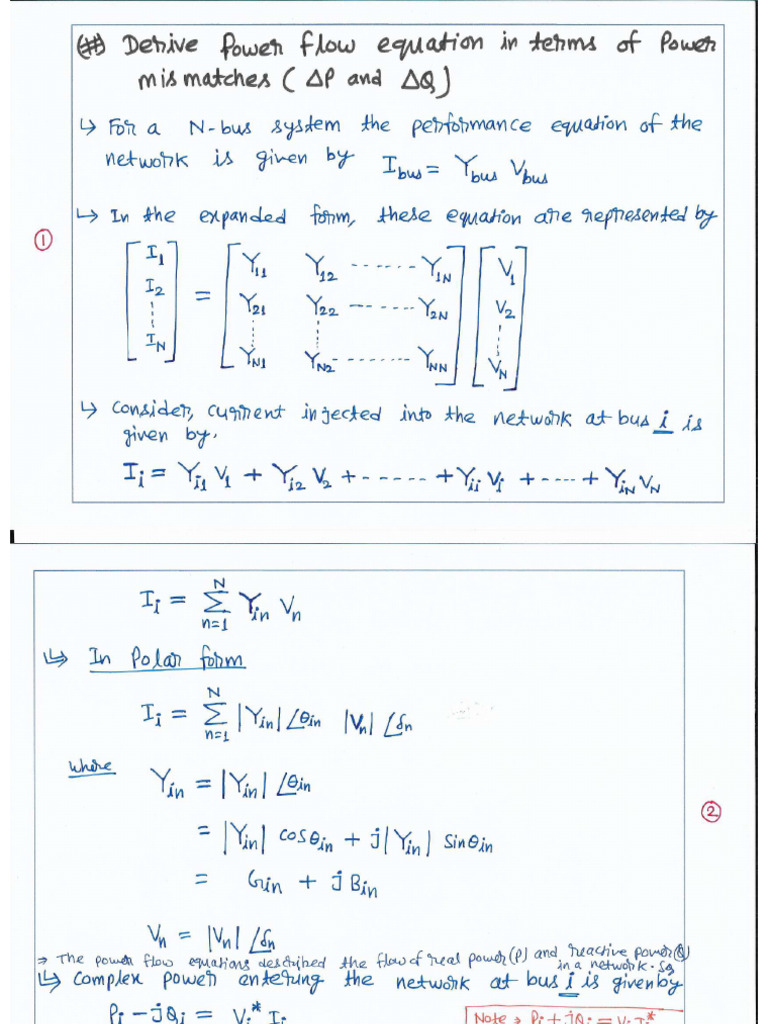 (#) Derive Power flow equation in terms of Power
mismatches (ΔP and ΔQ)
↳ For a N-bus system the performance equation of the
network is given by I_bus = Y_bus V_bus
↳ In the expanded form, these equation are represented by
①
[I_1 I_2 ⋮ I_N] = [Y_11 Y_12 ------- Y_1N; Y_21 Y_22 ------- Y_2N; ⋮ ⋮; Y_N1 Y_N2 ------- Y_NN] [V_1 V_2 ⋮ V_N]
↳ Consider, current injected into the network at bus i is
given by.
I_i = Y_i1 V_1 + Y_i2 V_2 + ------ + Y_ii V_i + ---- + Y_iN V_N
I_i = Σ_{n=1}^{N} Y_in V_n
↳ In Polar form
I_i = Σ_{n=1}^{N} |Y_in| ∠θ_in |V_n| ∠δ_n
where
Y_in = |Y_in| ∠θ_in
②
= |Y_in| cosθ_in + j|Y_in| sinθ_in
= G_in + j B_in
V_n = |V_n| ∠δ_n
⇒ The power flow equations described the flow of real power (P) and reactive power (Q)
in a network. So
↳ Complex power entering the network at bus i is given by
P_i - jQ_i = V_i* I_i
Note → P_i + jQ_i = V_i I_i*